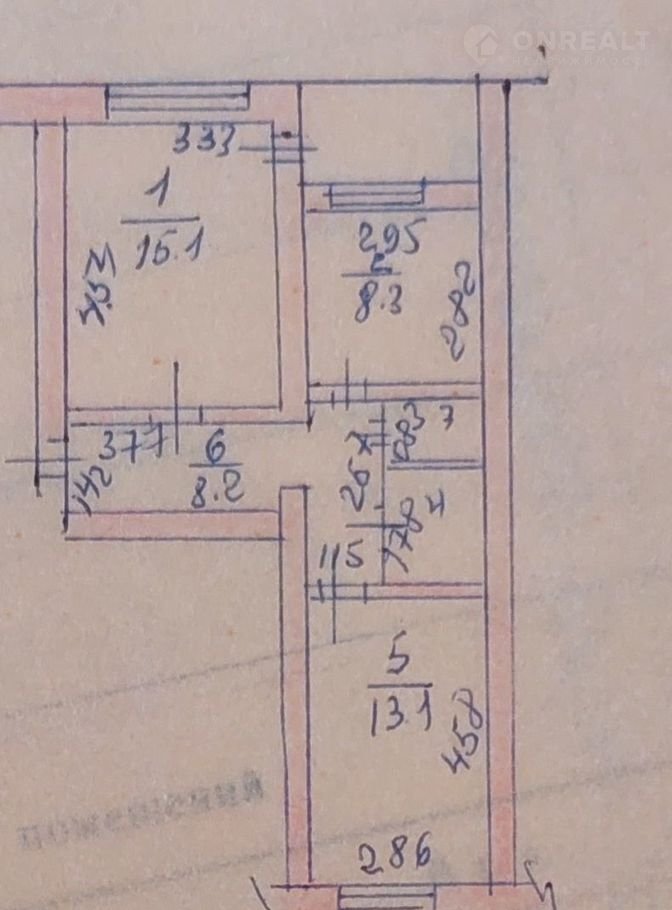 ONREALT
НЕДВИЖИМОСТЬ
333
1
15.1
4.53
295
2
8.3
282
377
6
8.2
142
3 7
267
4
178
115
5
13.1
458
286
помещений